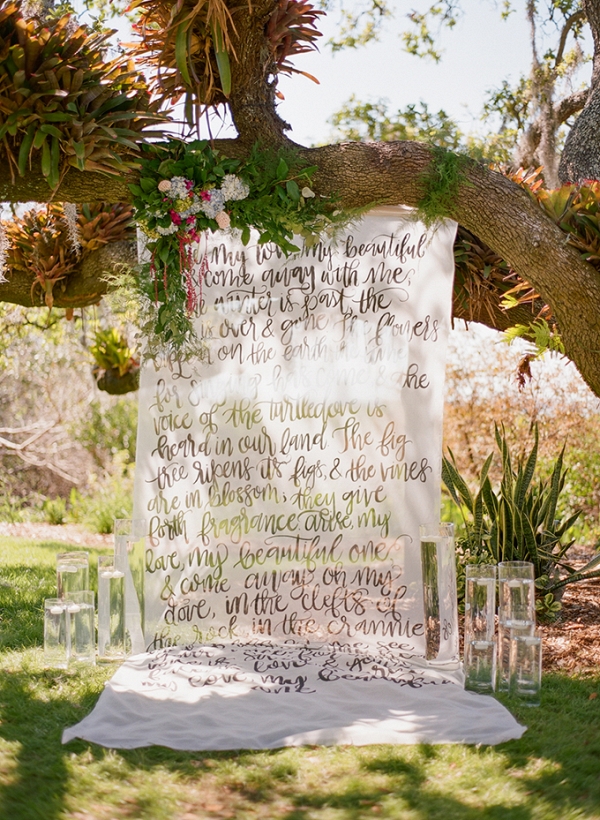 my love, my beautiful
come away with me,
winter is past the
is over & gone. The flowers
on the earth
for singing has come & the
voice of the turtledove is
heard in our land. The fig
tree ripens its figs, & the vines
are in blossom; they give
forth fragrance arise, my
love, my beautiful one,
& come away oh my
dove, in the clefts of
the rock in the crannie